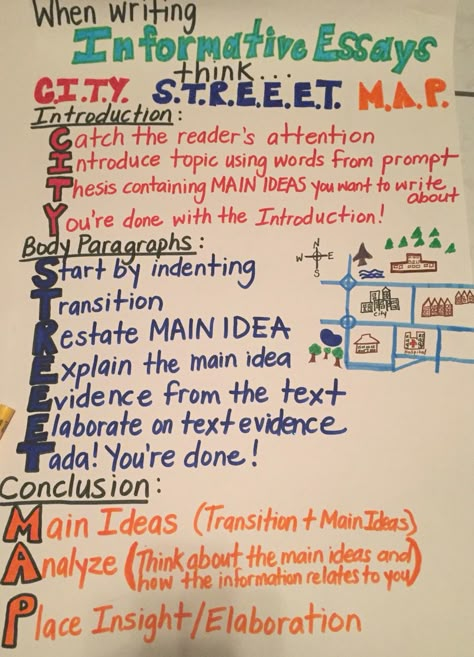 When writing
Informative Essays
think...
C.I.T.Y. S.T.R.E.E.E.T. M.A.P.
Introduction:
Catch the reader's attention
Introduce topic using words from prompt
Thesis containing MAIN IDEAS you want to write about
You're done with the Introduction!
Body Paragraphs:
Start by indenting
Transition
Restate MAIN IDEA
Explain the main idea
Evidence from the text
Elaborate on text evidence
Tada! You're done!
N
W E
S
City
Hospital
Conclusion:
Main Ideas (Transition + Main Ideas)
Analyze (Think about the main ideas and
how the information relates to you)
Place Insight/Elaboration